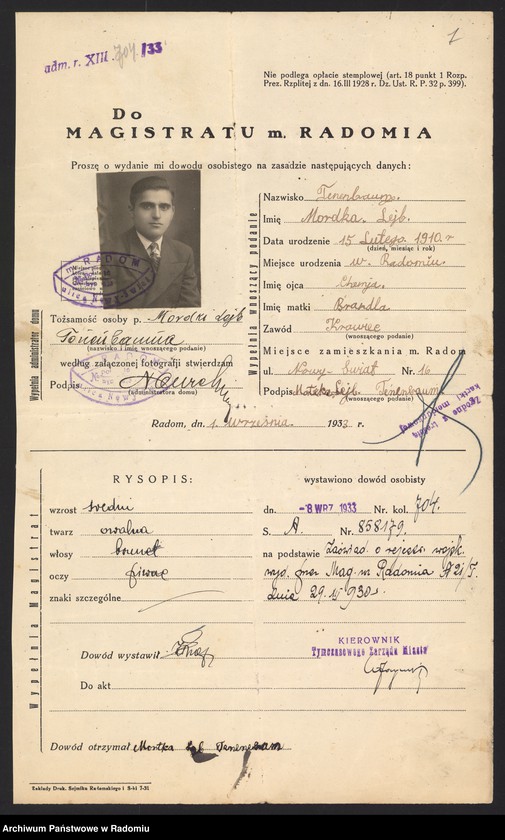 adm. r. XIII 704 /33
1
Nie podlega opłacie stemplowej (art. 18 punkt 1 Rozp.
Prez. Rzplitej z dn. 16.III 1928 r. Dz. Ust. R. P. 32 p. 399).
Do
MAGISTRATU m. RADOMIA
Proszę o wydanie mi dowodu osobistego na zasadzie następujących danych:
Wypełnia wnoszący podanie
Nazwisko Tenenbaum.
Imię Mordka Lejb.
Data urodzenie 15 Lutego 1910 r
(dzień, miesiąc i rok)
Miejsce urodzenia w. Radomiu.
Imię ojca
Imię matki Brandla
Zawód Krawiec
(wnoszącego podanie)
Miejsce zamieszkania m. Radom
ul. Nowy-Świat Nr. 16
Podpis Lejb Tenenbaum
(wnoszącego podanie)
RADOM
Wypełnia administrator domu
Tożsamość osoby p. Mordki Lejb
(nazwisko i imię wnoszącego podanie)
według załączonej fotografji stwierdzam
Podpis
(administratora domu)
Radom, dn. 1. Września 1933 r.
RYSOPIS:
Wypełnia Magistrat
wzrost średni
twarz owalna
włosy brunet
oczy piwne
znaki szczególne
Dowód wystawił
Do akt
wystawiono dowód osobisty
dn. -8 WRZ. 1933 Nr. kol. 704.
S. A. Nr. 858179.
na podstawie Zaświad. o rejestr. wojsk.
wyd. przez Mag. m. Radomia
dnia 29. 930 r.
KIEROWNIK
Tymczasowego Zarządu Miasta
Dowód otrzymał
Zakłady Druk. Sejmiku Radomskiego
Archiwum Państwowe w Radomiu